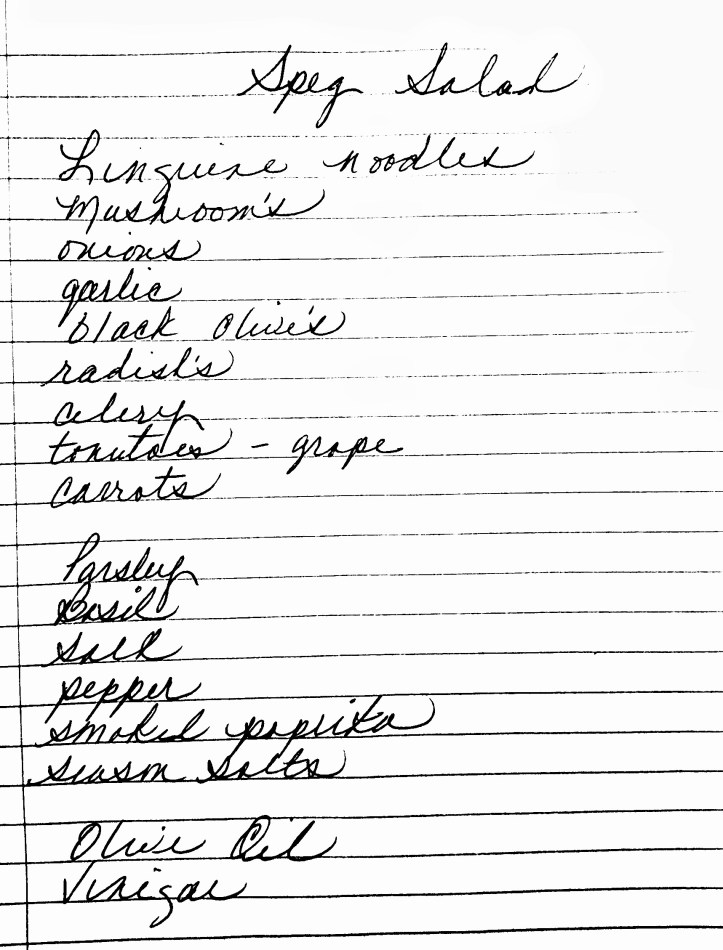 Speg Salad
Linguine noodles
Mushroom's
onions
garlic
black Olive's
radish's
celery
tomatoes - grape
carrots
Parsley
Basil
Salt
pepper
smoked paprika
season salts
Olive Oil
Vinigar